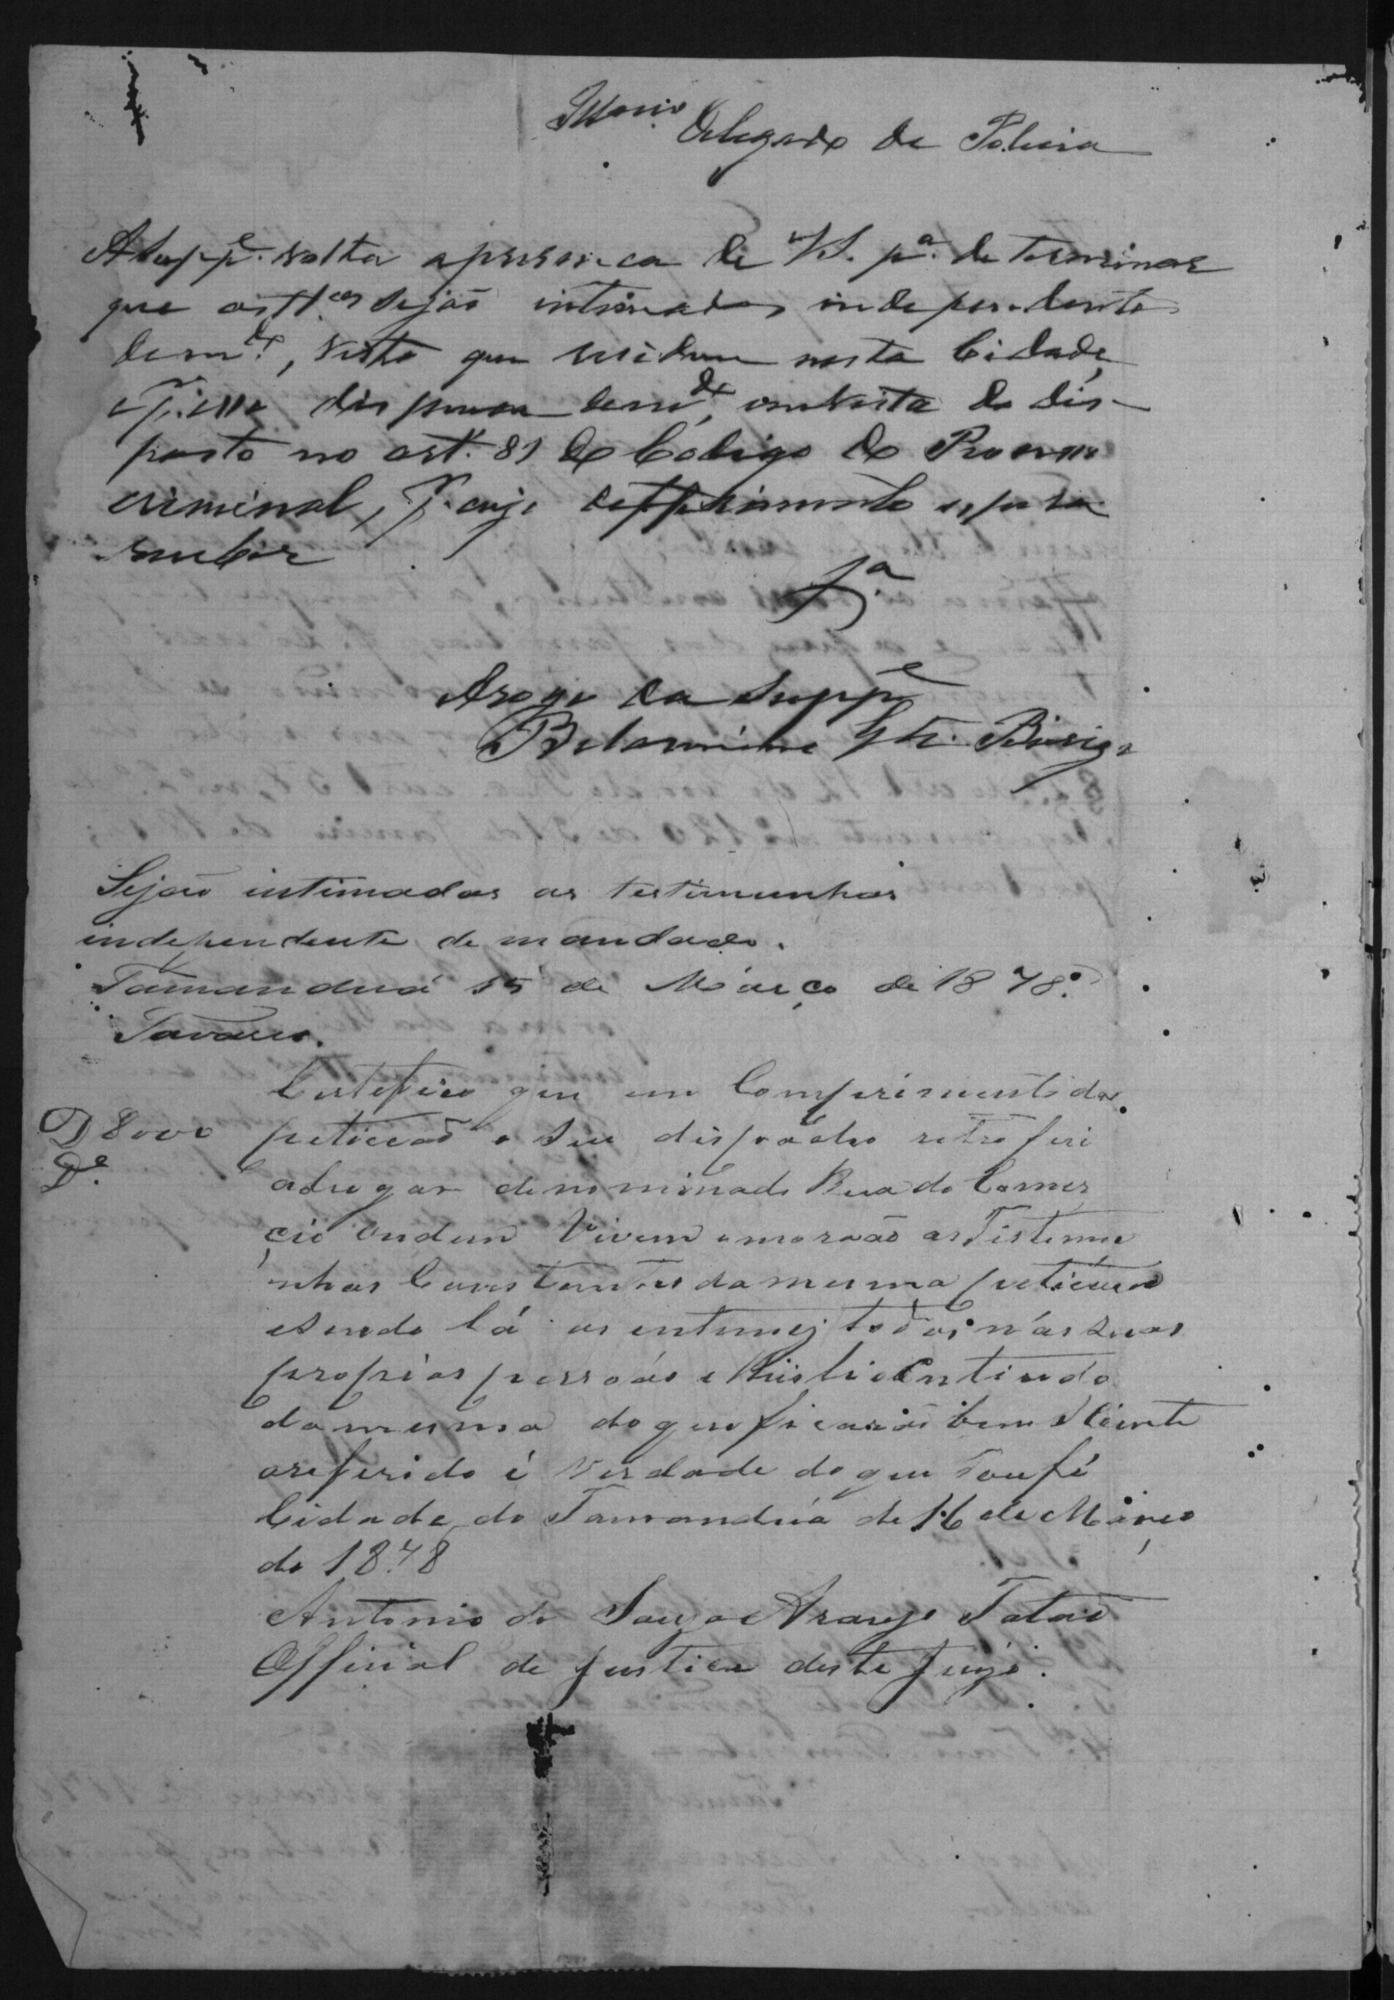 Illmo
Delegado de Policia
A Suppe. volta a presença de V.S. pa. determinar
que as tt.as sejão intimadas independente
de mdo., visto que residem nesta Cidade,
e p. isso dispensa de mdo, em vista do dis-
posto no art. 81 do Codigo do Processo
criminal, p. cujo defferimento espera
receber
Ja.
A rogo da Suppe
Belarmino
Sejão intimadas as testimunhas
independente de mandado.
Tamanduá 15 de Março de 1878.
Tavares.
Certefico que em Comperimento da
D 8000 peticão e seu dispacho retro fui
De. a lugar denominado Rua do Comer
cio onden Vivem e morão as Testemu
nhas Constantes da mesma peticão
e sendo lá as entimei todas n'as suas
proprias pessoas e lhis li o Contiudo
da mesma do que ficarão bem Sciente
o referido é Verdade do que dou fé
Cidade do Tamanduá de 16 de Março
de 1878
Antonio de Souza e Araujo Tatão
Official de justica deste juizo.